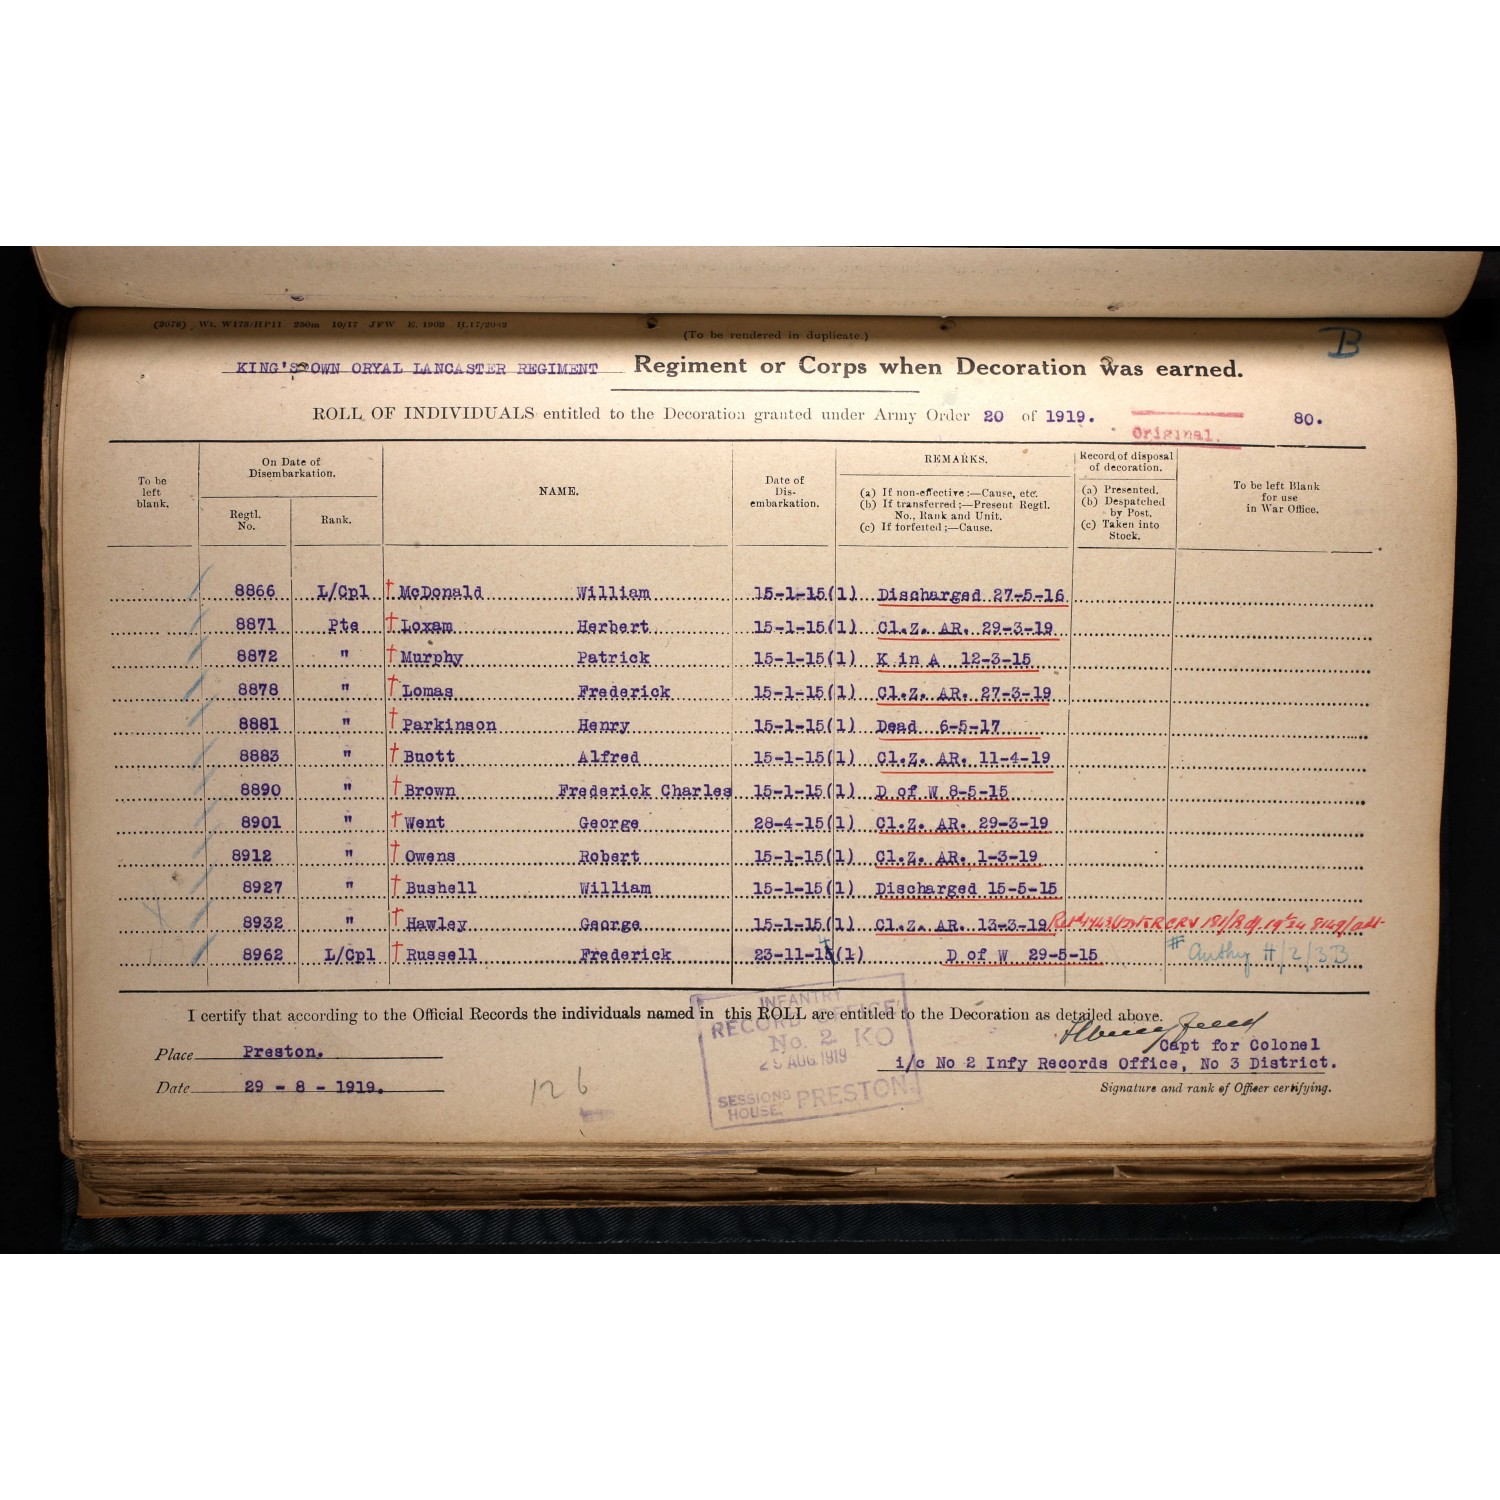 (2078) Wt. W175/HP11 250m 10/17 JFW E. 1902 H.17/20-2
(To be rendered in duplicate.)
B
KING'S OWN ORYAL LANCASTER REGIMENT Regiment or Corps when Decoration was earned.
ROLL OF INDIVIDUALS entitled to the Decoration granted under Army Order 20 of 1919. Original. 80.
To be left blank. On Date of Disembarkation. Regtl. No. Rank. NAME. Date of Dis-embarkation. REMARKS. (a) If non-effective:—Cause, etc. (b) If transferred:—Present Regtl. No., Rank and Unit. (c) If forfeited:—Cause. Record of disposal of decoration. (a) Presented. (b) Despatched by Post. (c) Taken into Stock. To be left Blank for use in War Office.
8866 L/Cpl † McDonald William 15-1-15(1) Discharged 27-5-16
8871 Pte † Loxam Herbert 15-1-15(1) Cl.Z. AR. 29-3-19
8872 " † Murphy Patrick 15-1-15(1) K in A 12-3-15
8878 " † Lomas Frederick 15-1-15(1) Cl.Z. AR. 27-3-19
8881 " † Parkinson Henry 15-1-15(1) Dead 6-5-17
8883 " † Buott Alfred 15-1-15(1) Cl.Z. AR. 11-4-19
8890 " † Brown Frederick Charles 15-1-15(1) D of W 8-5-15
8901 " † Went George 28-4-15(1) Cl.Z. AR. 29-3-19
8912 " † Owens Robert 15-1-15(1) Cl.Z. AR. 1-3-19
8927 " † Bushell William 15-1-15(1) Discharged 15-5-15
8932 " † Hawley George 15-1-15(1) Cl.Z. AR. 13-3-19
8962 L/Cpl † Russell Frederick 23-11-14(1) D of W 29-5-15 # Authy H/2/3B
I certify that according to the Official Records the individuals named in this ROLL are entitled to the Decoration as detailed above.
Capt for Colonel
Place Preston. i/c No 2 Infy Records Office, No 3 District.
Date 29 - 8 - 1919. Signature and rank of Officer certifying.
INFANTRY
RECORD OFFICE
No. 2 KO
AUG 1919
SESSIONS HOUSE, PRESTON.
126